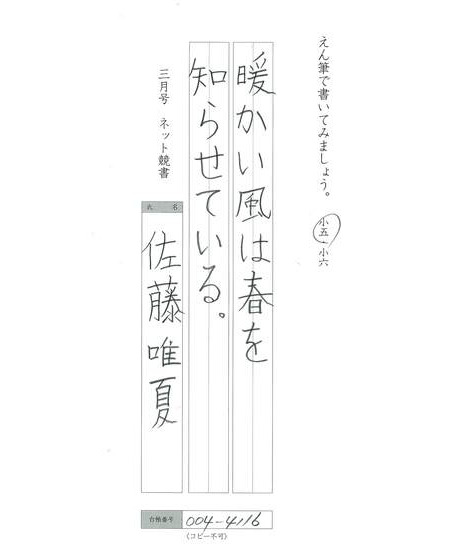 えん筆で書いてみましょう。
小五・小六
暖かい風は春を
知らせている。
三月号 ネット競書
氏 名
佐藤唯夏
台帳番号 004-4116
(コピー不可)